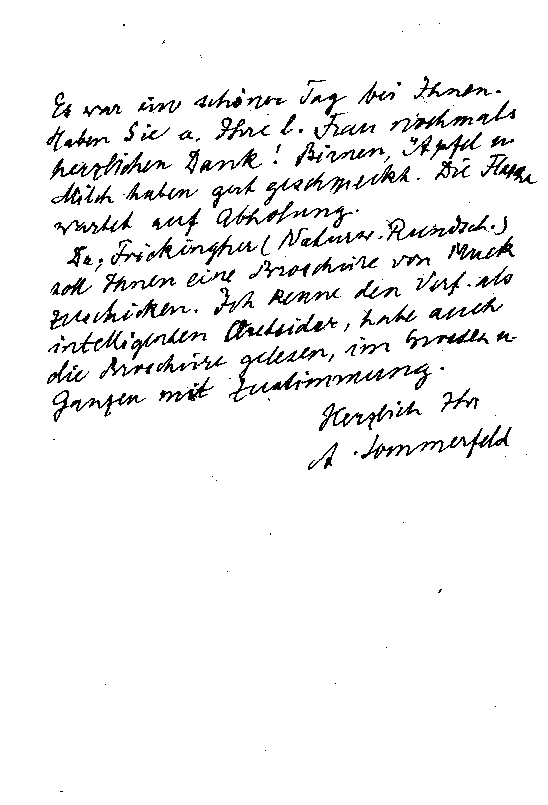 Es war ein schöner Tag bei Ihnen.
Haben Sie u. Ihre l. Frau nochmals
herzlichen Dank! Birnen, Äpfel u.
Milch haben gut geschmeckt. Die Flasche
wartet auf Abholung.
Dr. Frickingher (Naturw. Rundsch.)
soll Ihnen eine Broschüre von Muck
zuschicken. Ich kenne den Verf. als
intelligenten Outsider, habe auch
die Broschüre gelesen, im Grossen u.
Ganzen mit Zustimmung.
Herzlich Ihr
A. Sommerfeld